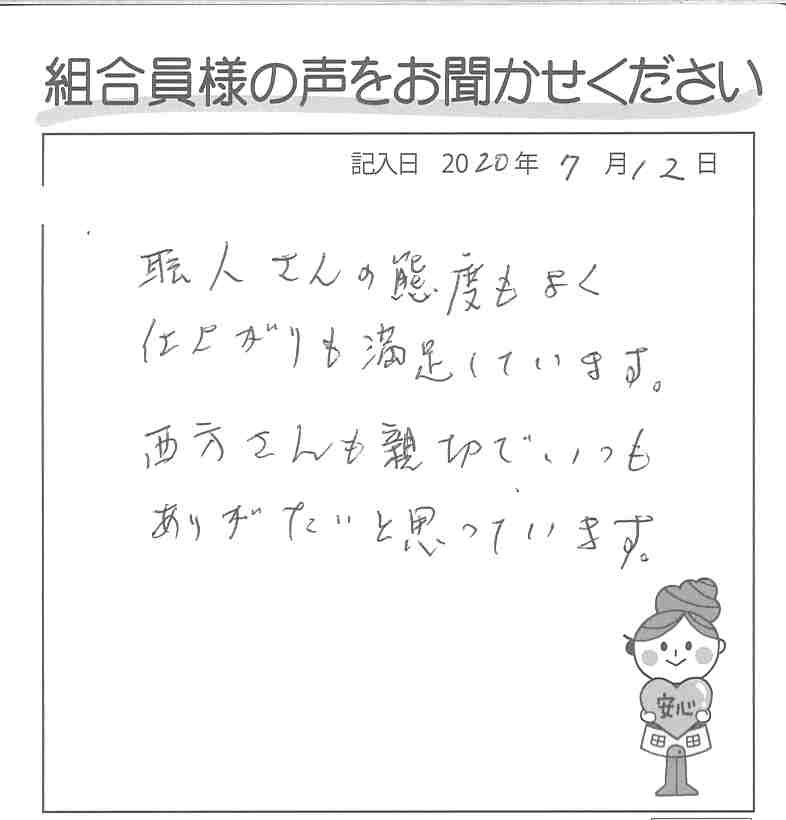 組合員様の声をお聞かせください
記入日 2020年 7月12日
職人さんの態度もよく
仕上がりも満足しています。
西方さんも親切でいつも
ありがたいと思っています。
安心